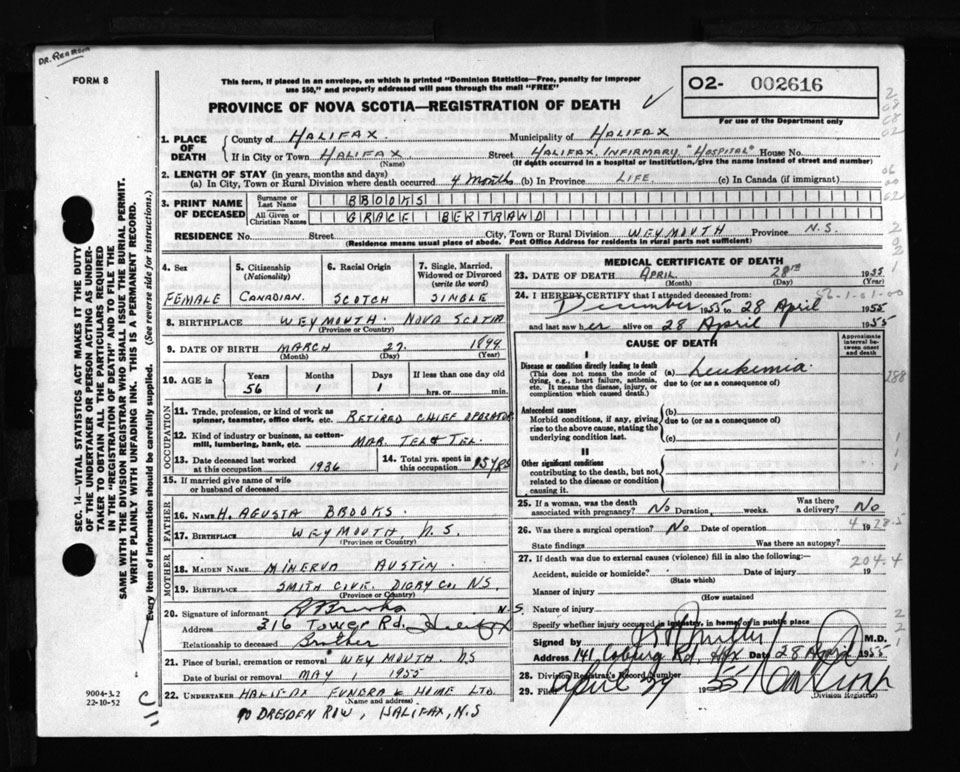 DR. REARDON
FORM 8
This form, if placed in an envelope, on which is printed "Dominion Statistics—Free, penalty for improper
use $50," and properly addressed will pass through the mail "FREE"
PROVINCE OF NOVA SCOTIA—REGISTRATION OF DEATH
O2- 002616
For use of the Department only
1. PLACE OF DEATH
County of HALIFAX. Municipality of HALIFAX
If in City or Town HALIFAX Street HALIFAX, INFIRMARY, "HOSPITAL" House No.
(Name) (If death occurred in a hospital or institution, give the name instead of street and number)
2. LENGTH OF STAY (in years, months and days)
(a) In City, Town or Rural Division where death occurred 4 Months (b) In Province LIFE. (c) In Canada (if immigrant)
3. PRINT NAME OF DECEASED
Surname or Last Name BROOKS
All Given or Christian Names GRACE BERTRAND
RESIDENCE No. Street City, Town or Rural Division WEYMOUTH Province N.S.
(Residence means usual place of abode. Post Office Address for residents in rural parts not sufficient)
4. Sex FEMALE
5. Citizenship (Nationality) CANADIAN.
6. Racial Origin SCOTCH
7. Single, Married, Widowed or Divorced (write the word) SINGLE
8. BIRTHPLACE WEYMOUTH. NOVA SCOTIA
(Province or Country)
9. DATE OF BIRTH MARCH 27. 1899
(Month) (Day) (Year)
10. AGE in Years 56 Months 1 Days 1 If less than one day old
hrs. or min.
OCCUPATION
11. Trade, profession, or kind of work as spinner, teamster, office clerk, etc. RETIRED CHIEF OPERATOR
12. Kind of industry or business, as cotton-mill, lumbering, bank, etc. MAR. TEL & TEL.
13. Date deceased last worked at this occupation 1936
14. Total yrs. spent in this occupation 15 YRS
15. If married give name of wife or husband of deceased
FATHER
16. NAME H. AGUSTA BROOKS
17. BIRTHPLACE WEYMOUTH, N.S.
(Province or Country)
MOTHER
18. MAIDEN NAME MINERVA AUSTIN.
19. BIRTHPLACE SMITH COVE. DIGBY CO. N.S.
(Province or Country)
20. Signature of informant N.S.
Address 316 Tower Rd. Halifax
Relationship to deceased Brother
21. Place of burial, cremation or removal WEYMOUTH. NS
Date of burial or removal MAY 1 1955
22. UNDERTAKER HALIFAX FUNERAL HOME LTD.
(Name and address)
90 DRESDEN ROW, HALIFAX, N.S
MEDICAL CERTIFICATE OF DEATH
23. DATE OF DEATH APRIL 28TH 1955
(Month) (Day)
24. I HEREBY CERTIFY that I attended deceased from:
December 1955 to 28 April 1955
and last saw her alive on 28 April 1955
CAUSE OF DEATH
Approximate interval between onset and death
I
Disease or condition directly leading to death
(This does not mean the mode of dying, e.g., heart failure, asthenia, etc. It means the disease, injury, or complication which caused death.)
(a) Leukemia
due to (or as a consequence of)
Antecedent causes
Morbid conditions, if any, giving rise to the above cause, stating the underlying condition last.
(b)
due to (or as a consequence of)
(c)
II
Other significant conditions
contributing to the death, but not related to the disease or condition causing it.
25. If a woman, was the death associated with pregnancy? No Duration weeks. Was there a delivery? No
26. Was there a surgical operation? No Date of operation 19
State findings Was there an autopsy?
27. If death was due to external causes (violence) fill in also the following:—
204.4
Accident, suicide or homicide? Date of injury 19
(State which)
Manner of injury
(How sustained)
Nature of injury
Specify whether injury occurred in industry, in home, or in public place
Signed by M.D.
Address 141 Coburg Rd, Hfx Date 28 April 1955
28. Division Registrar's Record Number
29. Filed April 29 1955
(Division Registrar)
SEC. 14—VITAL STATISTICS ACT MAKES IT THE DUTY
OF THE UNDERTAKER OR PERSON ACTING AS UNDER-
TAKER TO OBTAIN ALL THE PARTICULARS REQUIRED
IN THE "REGISTRATION OF DEATH" AND TO FILE THE
SAME WITH THE DIVISION REGISTRAR WHO SHALL ISSUE THE BURIAL PERMIT.
WRITE PLAINLY WITH UNFADING INK. THIS IS A PERMANENT RECORD.
Every item of information should be carefully supplied. (See reverse side for instructions.)
9004-3.2
22-10-52